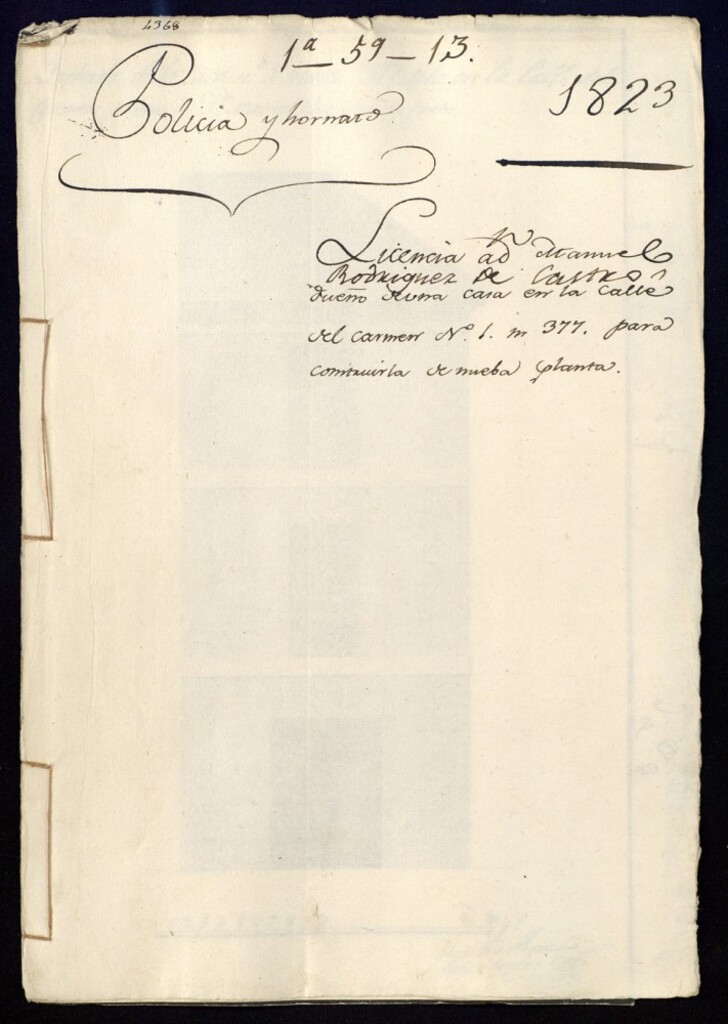 4368
1ª 59-13.
Policia y hornato
1823
Licencia a Dn Manuel
Rodriguez de Castro
dueño de una casa en la Calle
del Carmen Nº. 1. m 377. para
construirla de nueba planta.